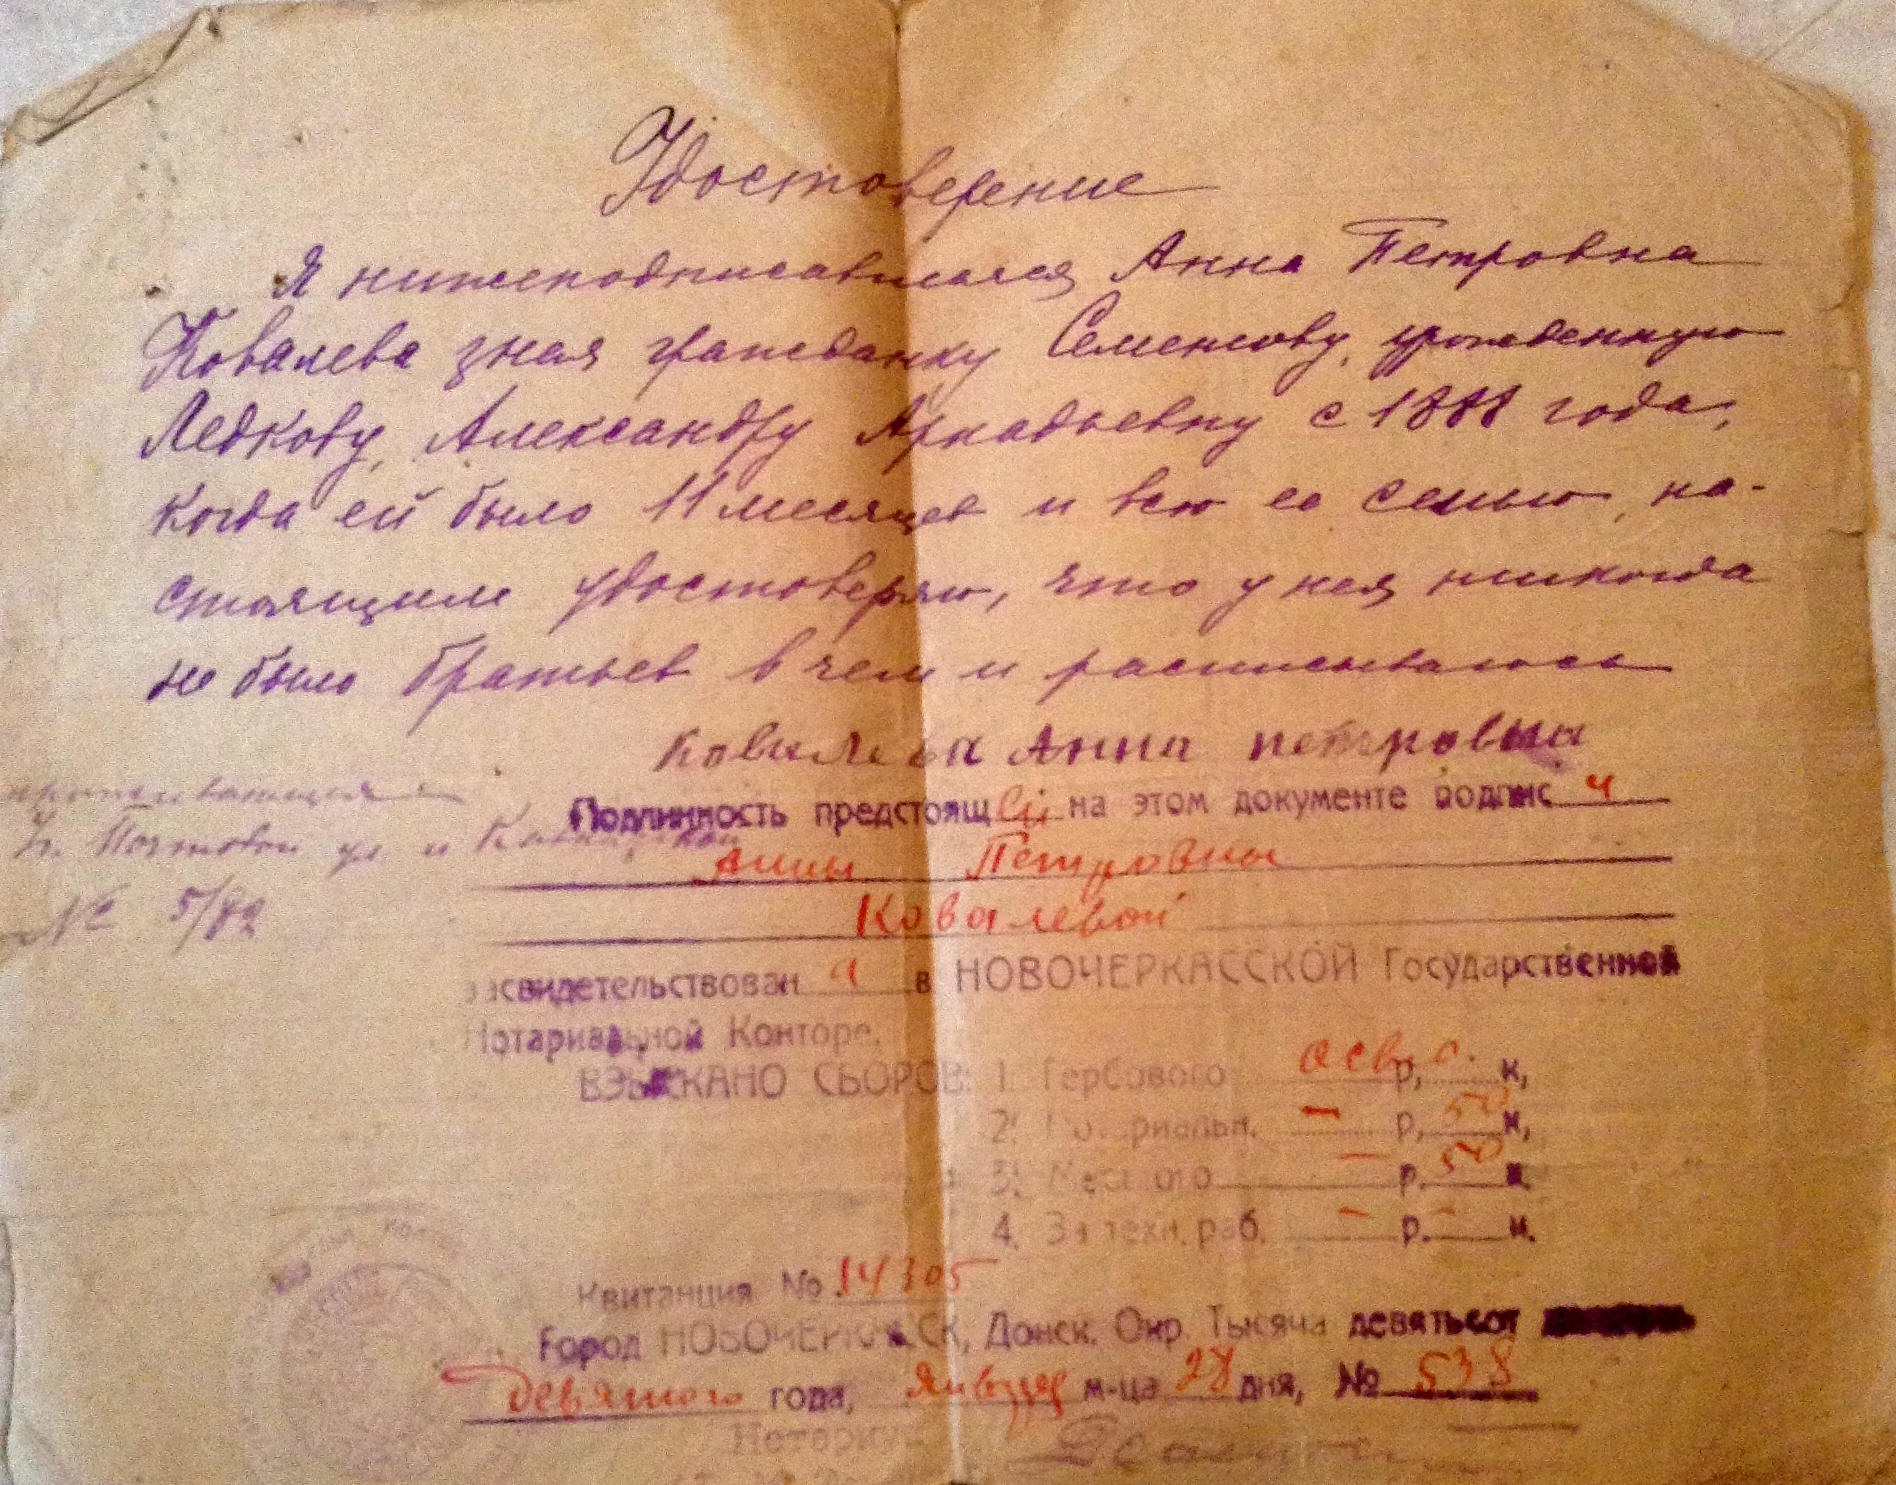 Удостоверение
Я нижеподписавшаяся Анна Петровна
Ковалева зная гражданку Семенову, урожденную
Ледкову, Александру Аркадьевну с 1888 года,
когда ей было 11 месяцев и всю ее семью, на-
стоящим удостоверяю, что у нея никогда
не было братьев в чем и расписываюсь
Ковалева Анна Петровна
проживающая
Уг. Почтовой ул. и
№ 5/82
Подлинность предстоящей на этом документе подписи
Анны Петровны
Ковалевой
засвидетельствована в НОВОЧЕРКАССКОЙ Государственной
Нотариальной Конторе.
ВЗЫСКАНО СБОРОВ: 1. Гербового осв. р, к,
2. Нотариальн. — р, 50 к,
3. Местного — р. 50 к.
4. За техн. раб. — р. — к.
Квитанция № 14305
Город НОВОЧЕРКАССК, Донск. Окр. Тысяча девятьсот
девятого года, Января м-ца 28 дня, № 538
Нотариус